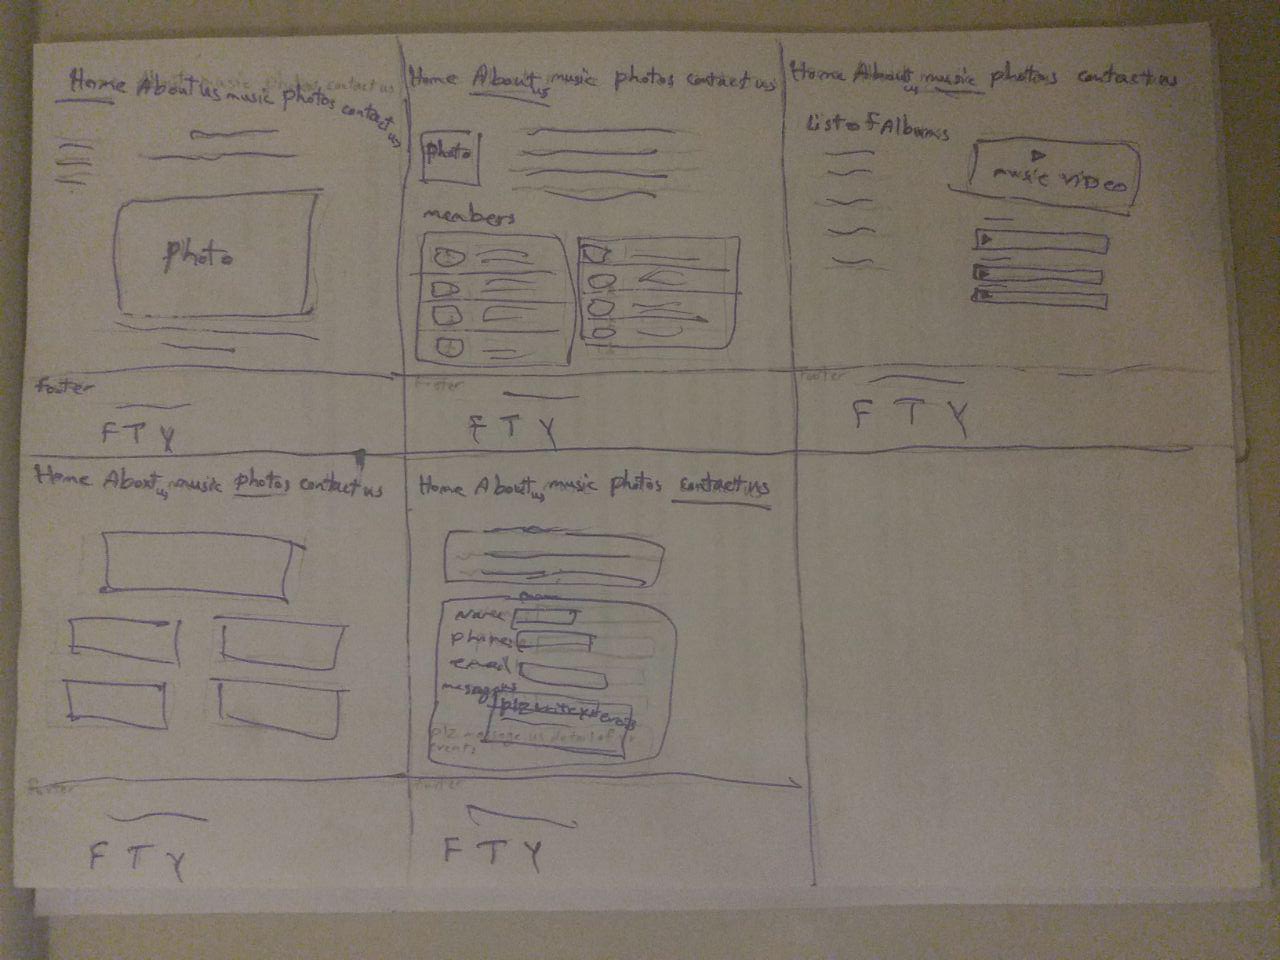 Home About us music photos contact us
photo
footer
F T Y
Home About us music photos contact us
photo
members
footer
F T Y
Home About us music photos contact us
List of Albums
music video
footer
F T Y
Home About us music photos contact us
footer
F T Y
Home About us music photos contact us
Name
phone
email
message us
plz message us details of ur
events
footer
F T Y